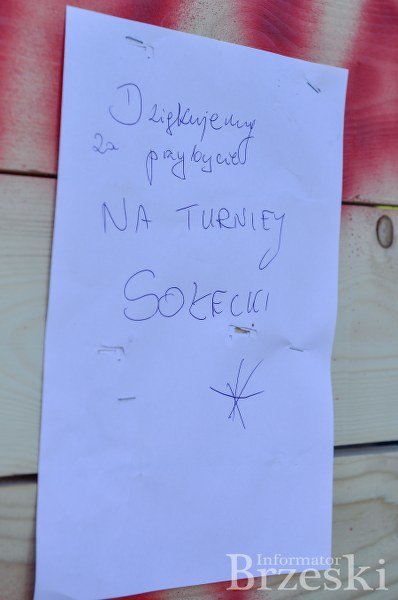 Dziękujemy
za przybycie
NA TURNIEY
SOŁECKI
Informator
Brzeski